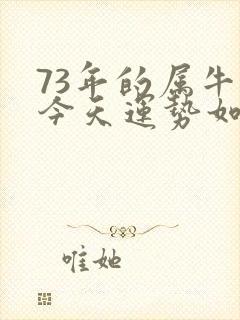 73年的属牛
今天运势如
唯她